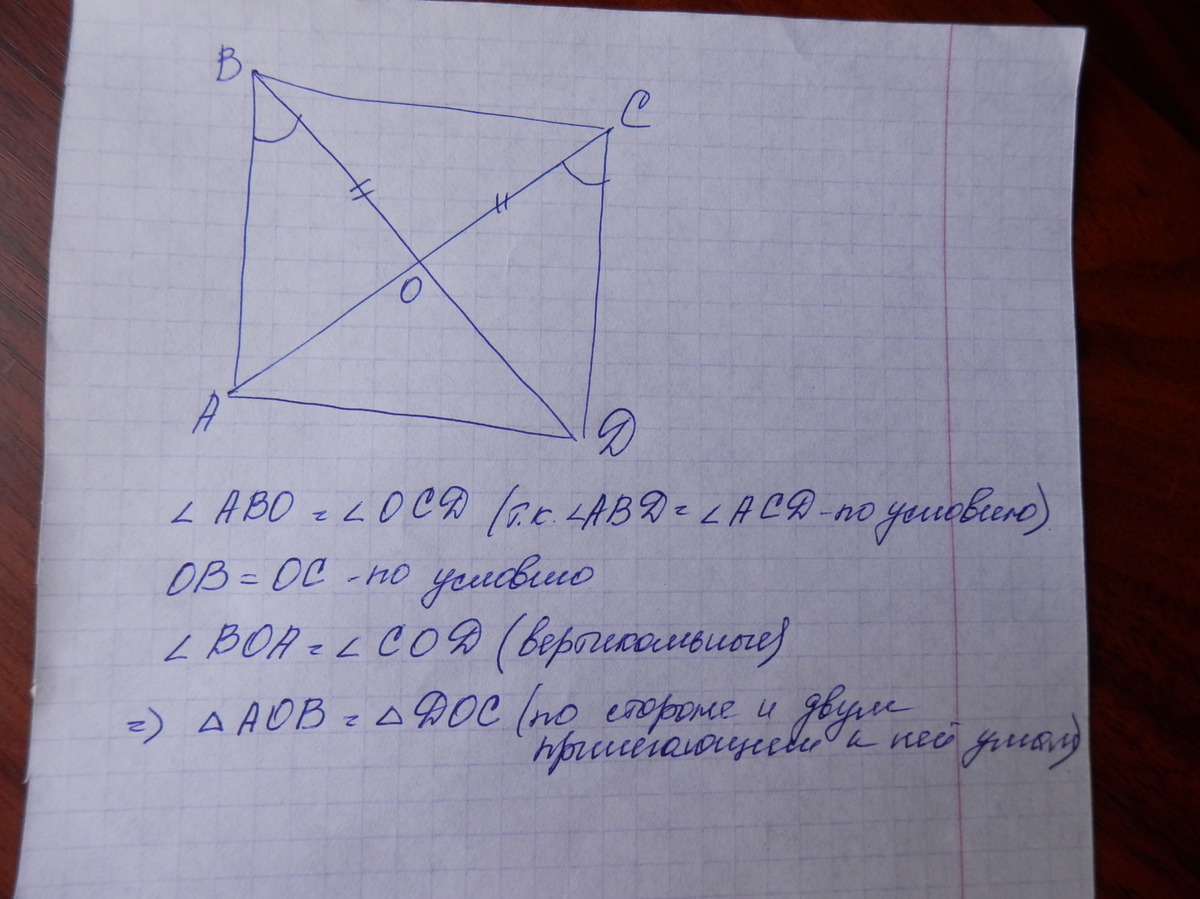 B
C
O
A
D
∠ ABO = ∠ OCD (т.к. ∠ABD = ∠ACD - по условию)
OB = OC - по условию
∠ BOA = ∠ COD (вертикальные)
=) △ AOB = △ DOC (по стороне и двум
прилегающим к ней углам)